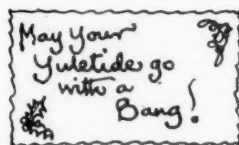 May your
Yuletide go
with a
Bang!